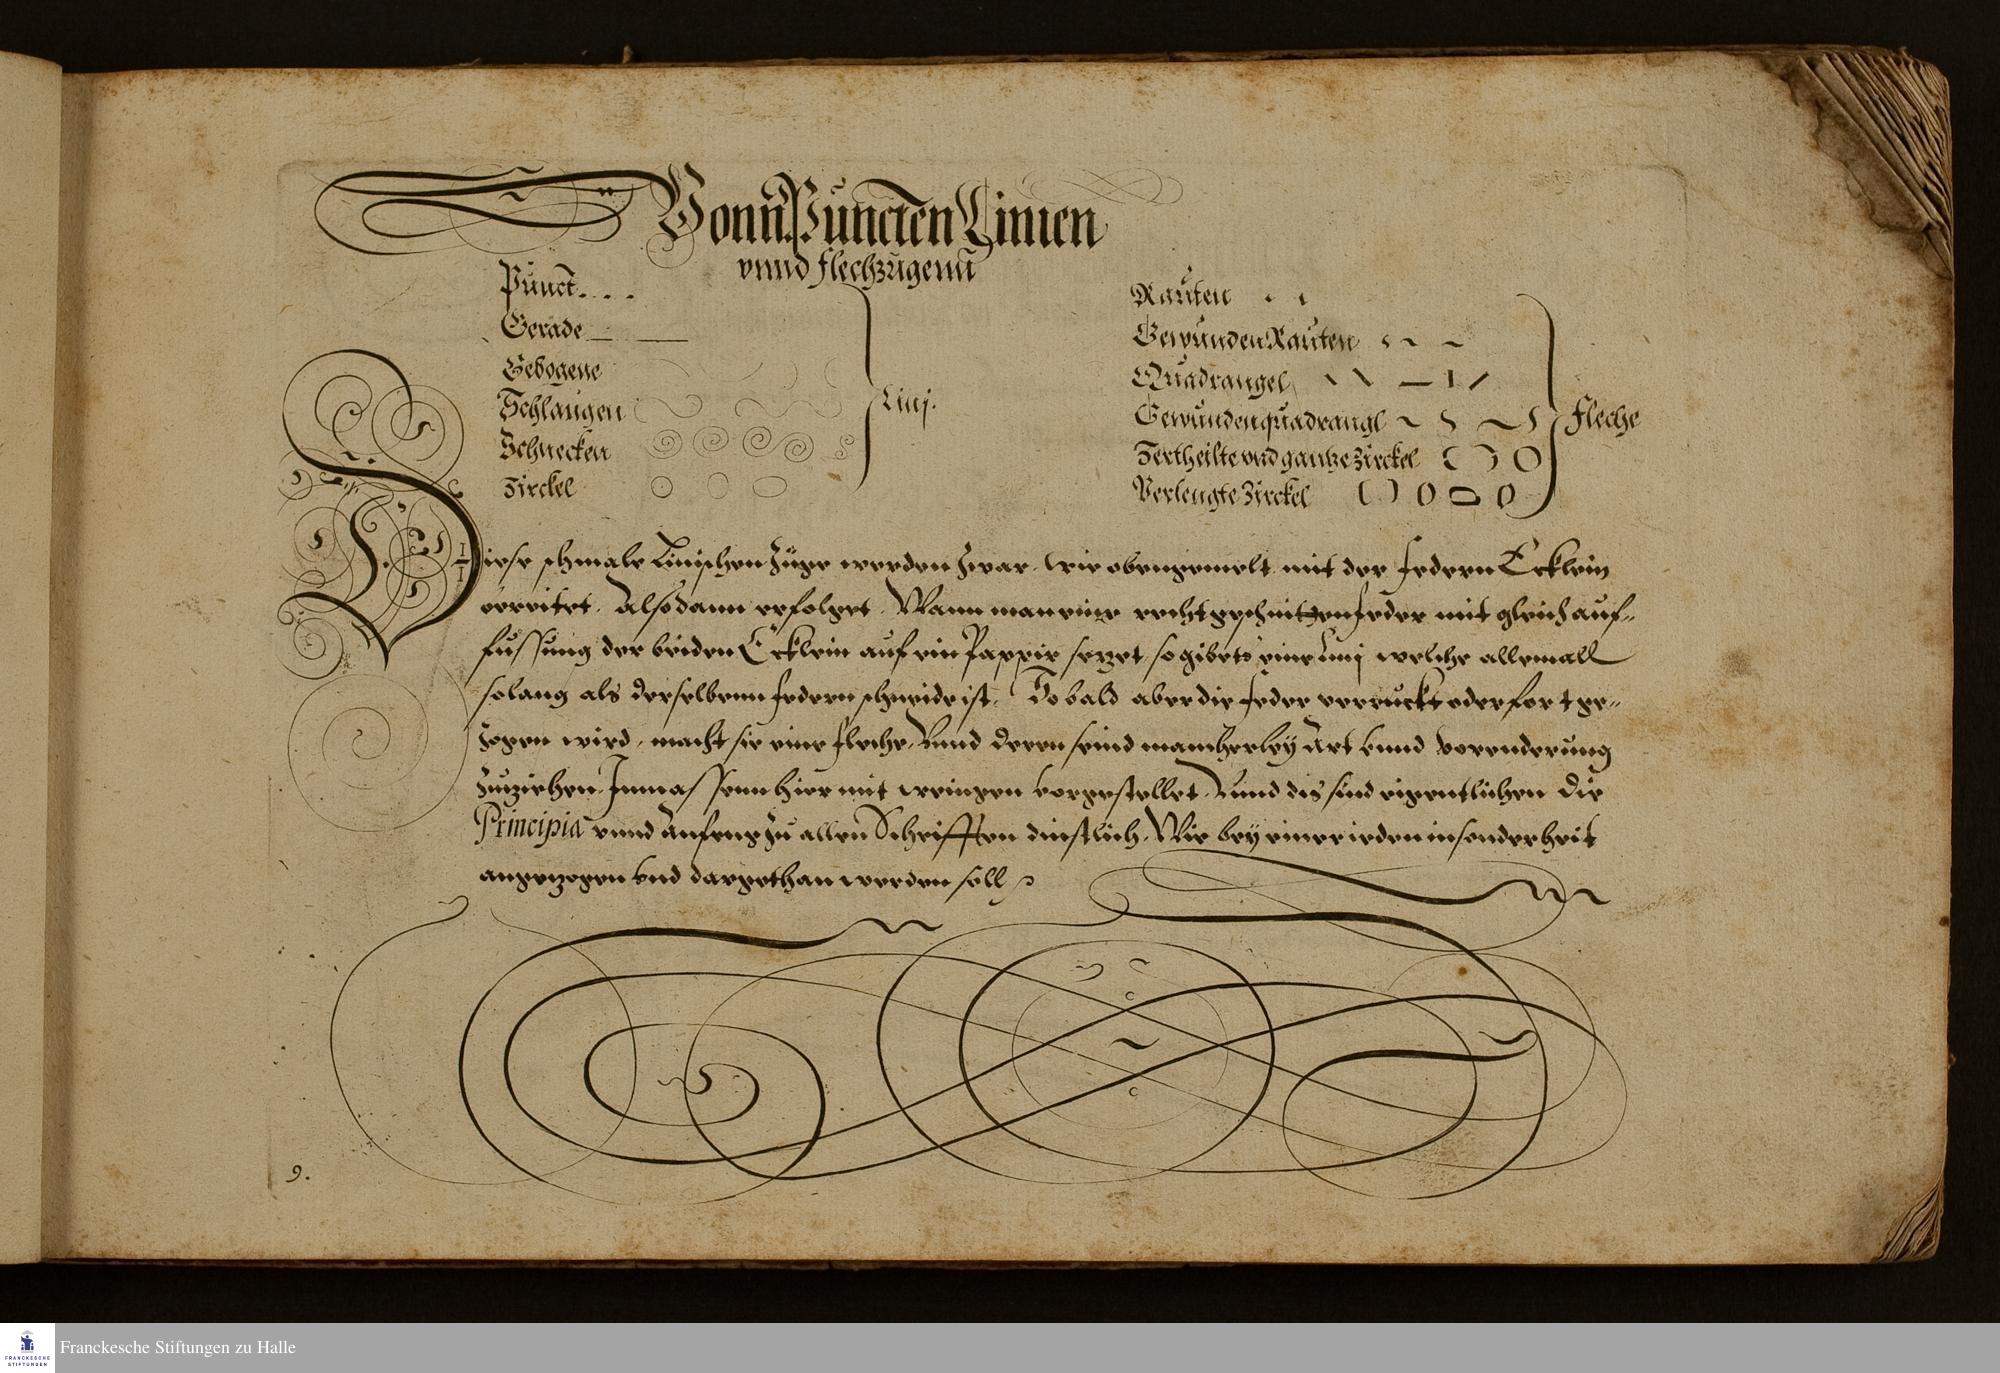 Vonn Puncten Linien
vnnd flechzugenn
Punct
Gerade
Gebogene
Schlangen
Schnecken
Zirckel
Linj.
Rauten
Gewunden Rauten
Quadrangel
Gewunden quadrangl
Zertheilte vnd gantze Zirckel
Verlengte Zirckel
Fleche
Diese schmale Linischen Züge werden zwar, wie obengemelt mit der federn Ecklein
bereitet. Alsodann erfolget, Wann man eine recht geschnittzen feder mit gleich auf-
fussung der beiden Ecklein auf ein Pappir setzet, so gibets eine Linj welche allemall
solang als derselbenn federn schneide ist. So bald aber die feder verruckt oder fort ge-
zogen wird, macht sie eine fleche, Vnnd deren seind mancherley Art vnnd verenderung
zuziehen, Inmassenn hier mit wenigen vorgestellet, Vnnd dis sind eigentlichen die
Principia vnnd Anfeng zu allen Schrifften dinstlich, Wie bey einer ieden insonderheit
angezogen vnd dargethan werden soll
9.
Franckesche Stiftungen zu Halle
FRANCKESCHE
STIFTUNGEN